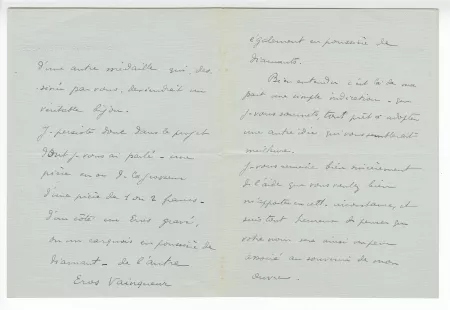 d'une autre médaille qui, des-
-sinée par vous, deviendrait un
véritable bijou.
Je persiste donc dans le projet
dont je vous ai parlé - une
pièce en or de la grosseur
d'une pièce de 1 ou 2 francs -
d'un côté un Eros gravé,
ou un carquois en poussière de
diamant - de l'autre
Eros Vainqueur
également en poussière de
diamants.
Bien entendu c'est là de ma
part une simple indication - que
je vous soumets, tout prêt à adopter
une autre idée qui vous semblerait
meilleure.
Je vous remercie bien sincèrement
de l'aide que vous voulez bien
m'apporter en cette circonstance, et
suis tout heureux de penser que
votre nom sera ainsi un peu
associé au souvenir de mon
œuvre.